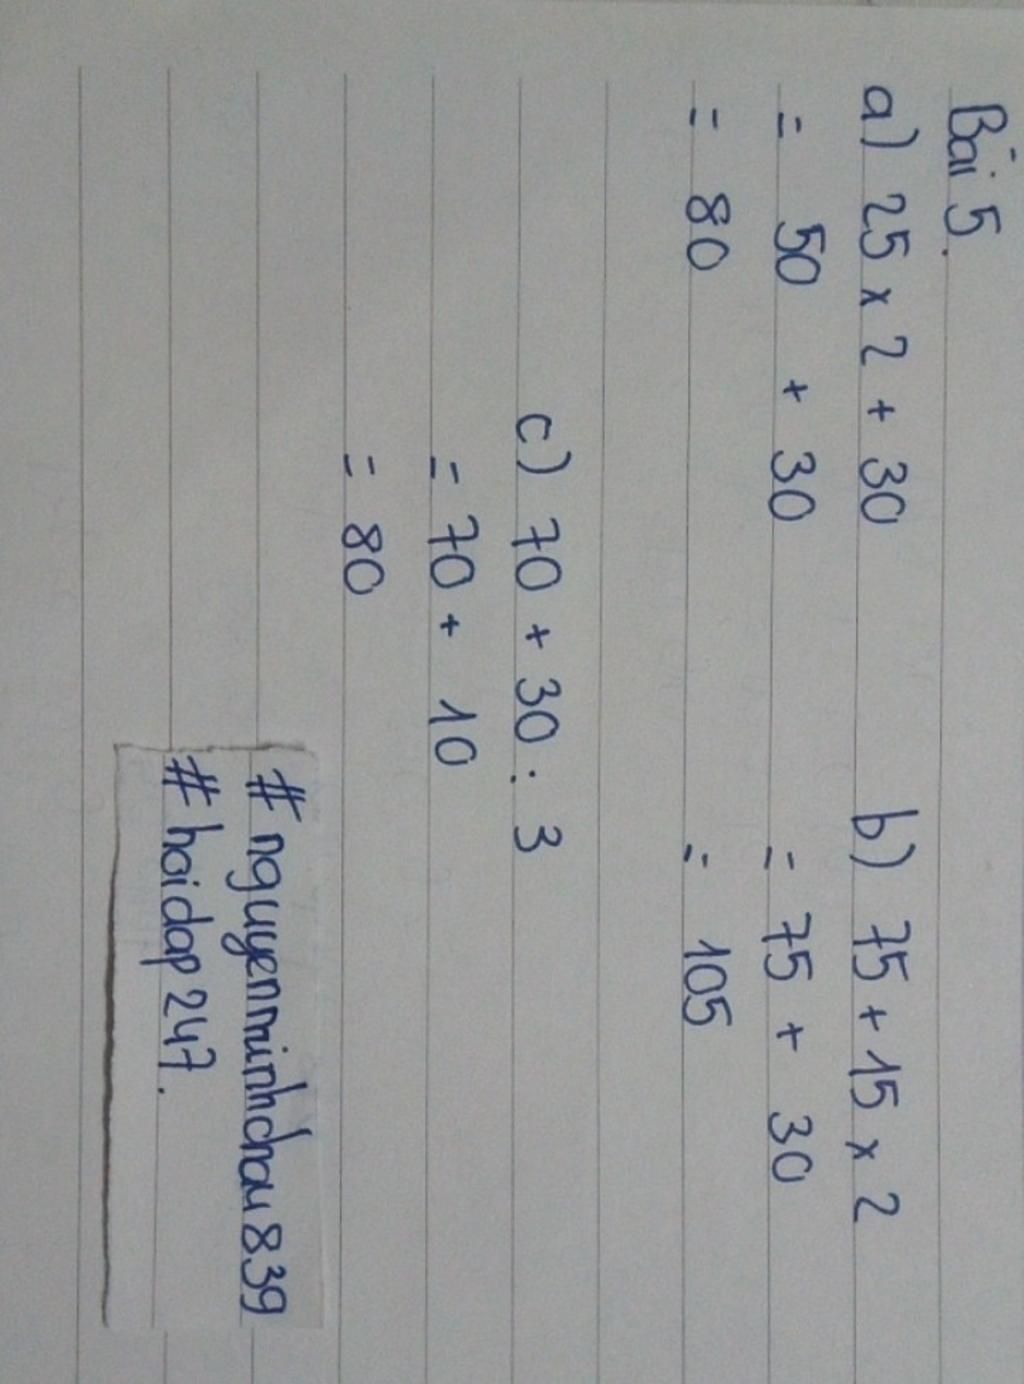 Bài 5.
a) 25 x 2 + 30
= 50 + 30
= 80
b) 75 + 15 x 2
= 75 + 30
= 105
c) 70 + 30 : 3
= 70 + 10
= 80
#nguyenminhchau839
#hoidap247.